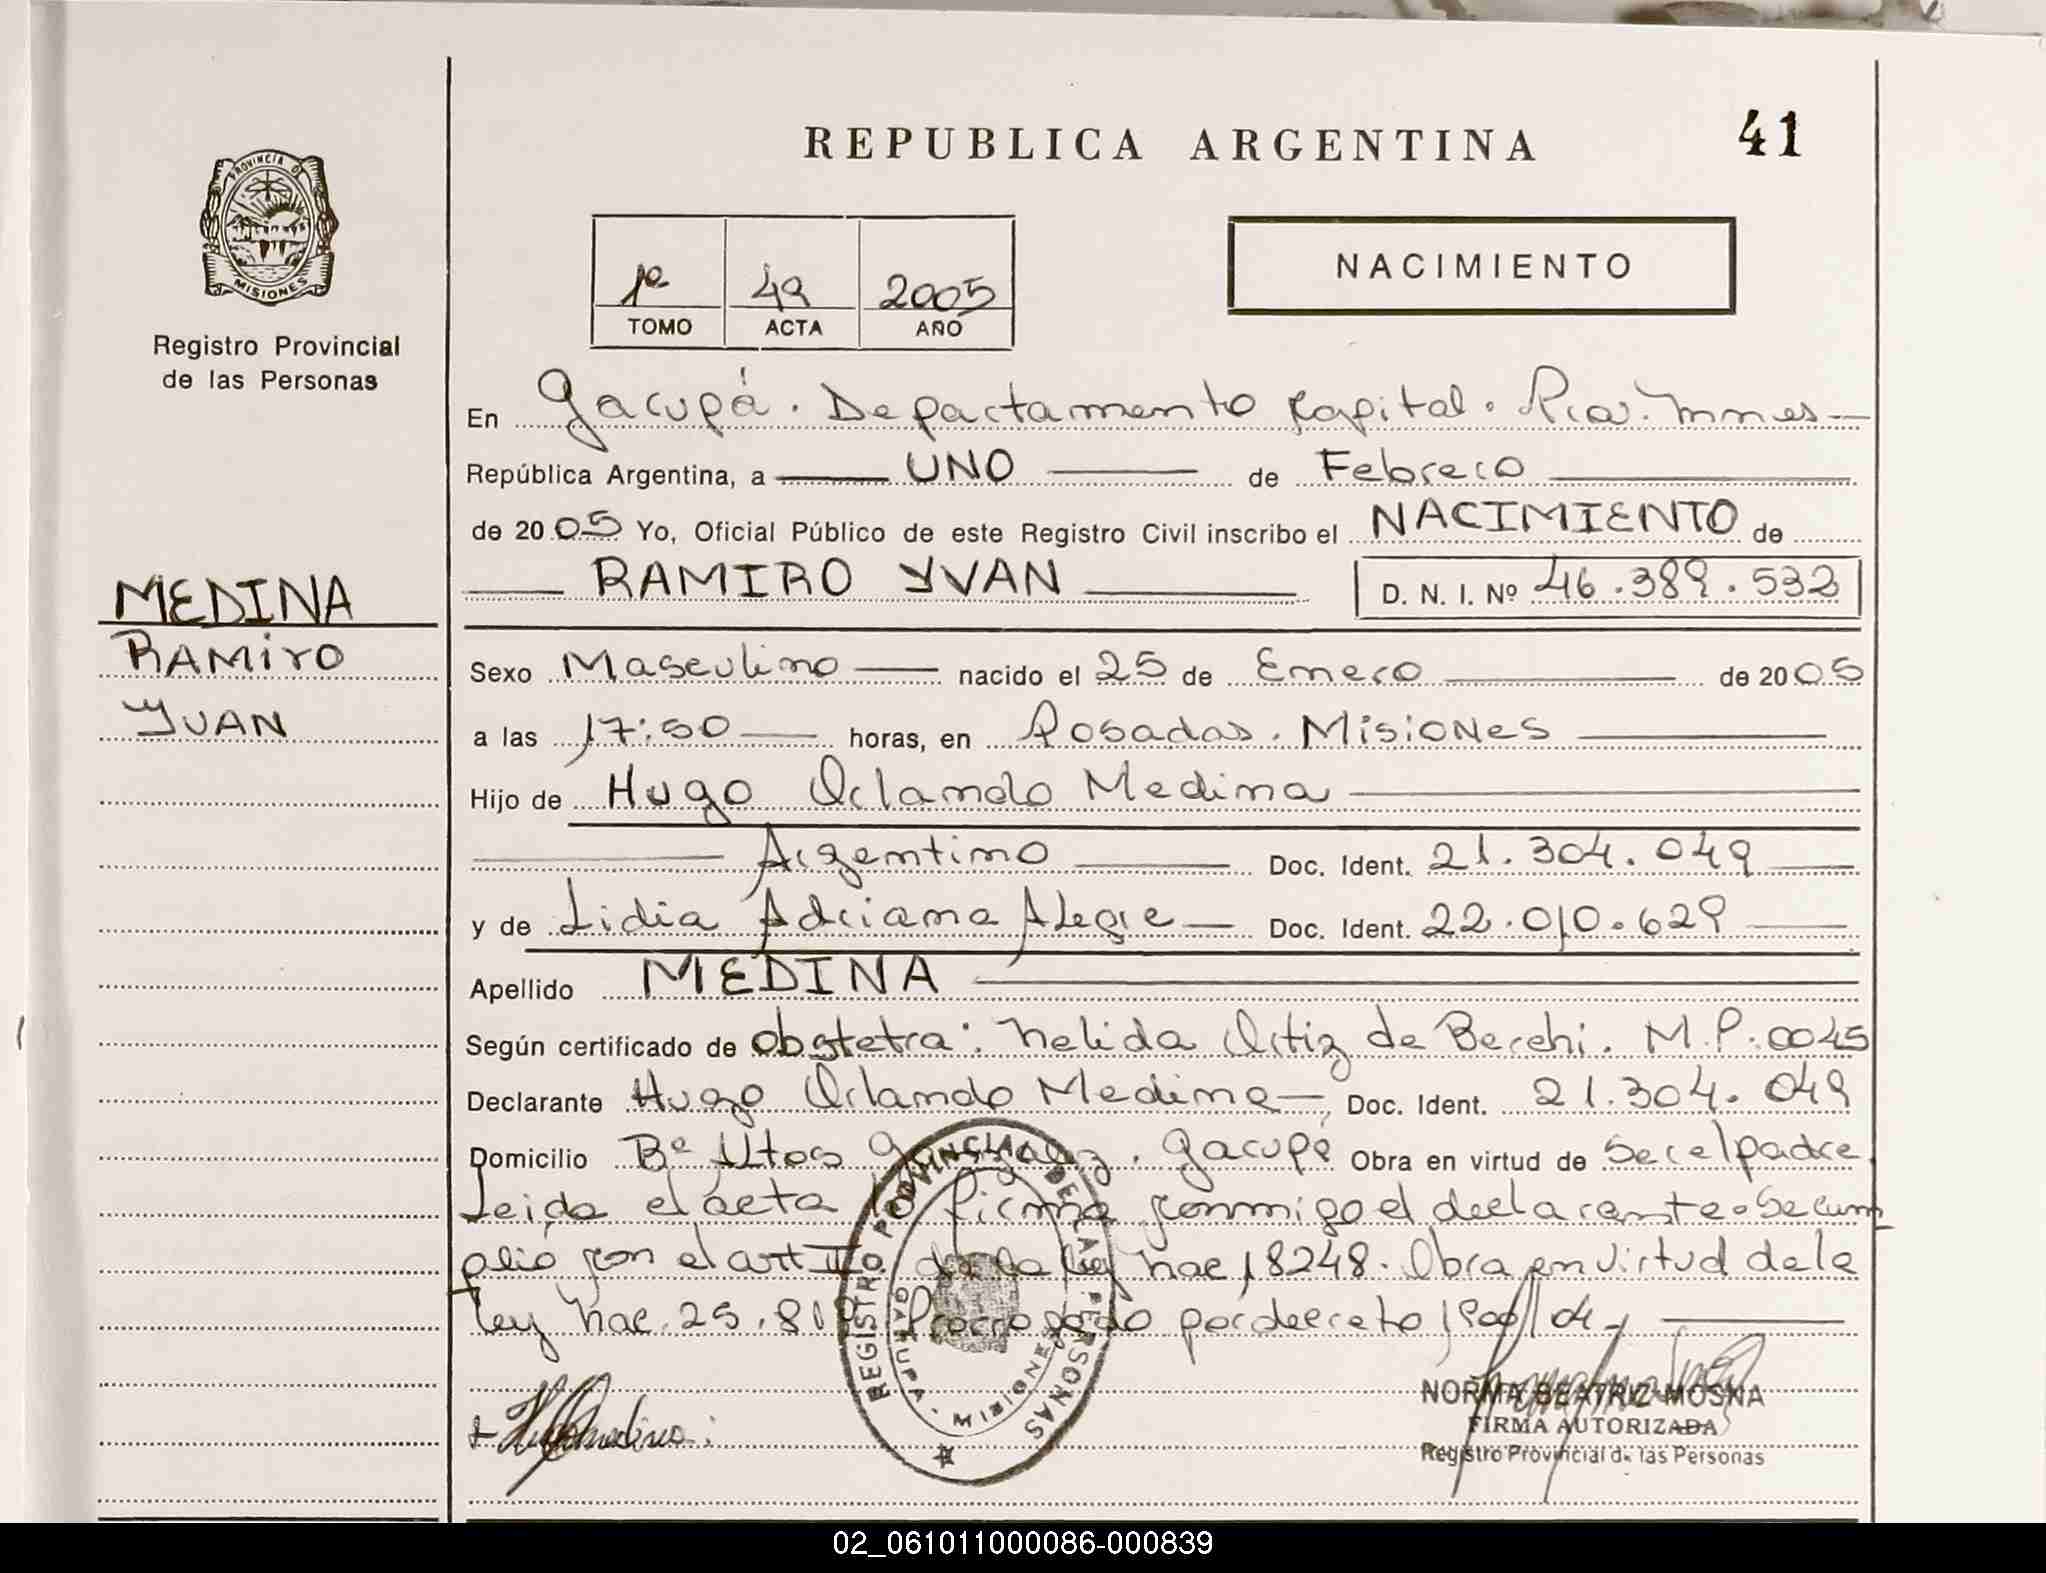 REPUBLICA ARGENTINA
41
PROVINCIA DE
MISIONES
Registro Provincial
de las Personas
1º 49 2005
TOMO ACTA AÑO
NACIMIENTO
En Garupá. Departamento Capital. Pcia. Mnes
República Argentina, a UNO de Febrero
de 2005 Yo, Oficial Público de este Registro Civil inscribo el NACIMIENTO de
RAMIRO YVAN D. N. I. Nº 46.389.532
MEDINA
RAMIRO
YVAN
Sexo Masculino nacido el 25 de Enero de 2005
a las 17:50 horas, en Posadas. Misiones
Hijo de Hugo Orlando Medina
Argentino Doc. Ident. 21.304.049
y de Lidia Adriana Alegre Doc. Ident. 22.010.629
Apellido MEDINA
Según certificado de obstetra: Nelida Ortiz de Berchi. M.P. 0045
Declarante Hugo Orlando Medina Doc. Ident. 21.304.049
Domicilio Bº Altos Garupá Obra en virtud de Ser el padre
Leida el acta la firma conmigo el declarante. Se cum
plió con el art II de la ley nac 18248. Obra en virtud de la
ley nac. 25.819 Prorrogado por decreto
REGISTRO PROVINCIAL DE LAS PERSONAS
GARUPA - MISIONES
NORMA BEATRIZ MOSNA
FIRMA AUTORIZADA
Registro Provincial de las Personas
02_061011000086-000839